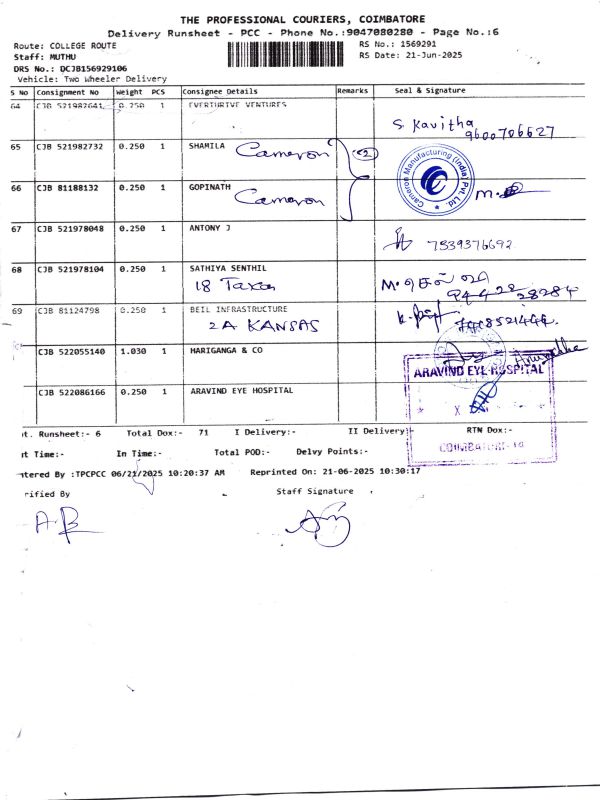 THE PROFESSIONAL COURIERS, COIMBATORE
Delivery Runsheet - PCC - Phone No.:9047080280 - Page No.:6
Route: COLLEGE ROUTE RS No.: 1569291
Staff: MUTHU RS Date: 21-Jun-2025
DRS No.: DCJB156929106
Vehicle: Two Wheeler Delivery
S No Consignment No Weight PCS Consignee Details Remarks Seal & Signature
64 CJB 521982641 0.250 1 EVERTHRIVE VENTURES
S. Kavitha
9600706627
65 CJB 521982732 0.250 1 SHAMILA Cameron 2
Cameron Manufacturing (India) Pvt. Ltd.
66 CJB 81188132 0.250 1 GOPINATH Cameron
67 CJB 521978048 0.250 1 ANTONY J
7539376692
68 CJB 521978104 0.250 1 SATHIYA SENTHIL
18 Taxon
69 CJB 81124798 0.250 1 BEIL INFRASTRUCTURE
2A KANSAS
CJB 522055140 1.030 1 HARIGANGA & CO
ARAVIND EYE HOSPITAL
CJB 522086166 0.250 1 ARAVIND EYE HOSPITAL
t. Runsheet:- 6 Total Dox:- 71 I Delivery:- II Delivery:- RTN Dox:-
COIMBATORE-14
rt Time:- In Time:- Total POD:- Delvy Points:-
tered By :TPCPCC 06/21/2025 10:20:37 AM Reprinted On: 21-06-2025 10:30:17
rified By Staff Signature